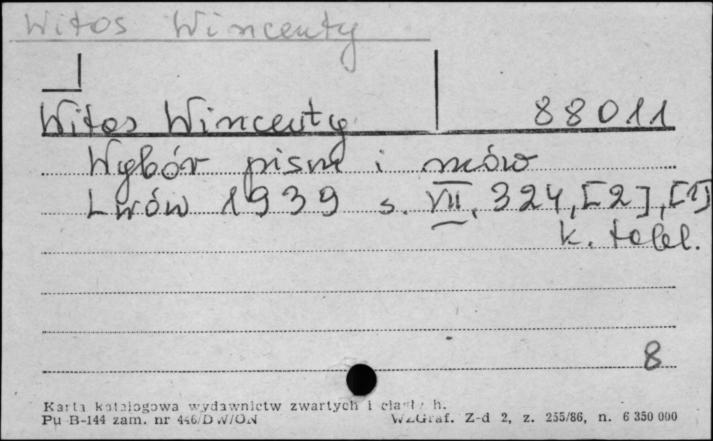 Witos Wincenty
Witos Wincenty 88011
Wybór pism i mów
Lwów 1939 s. VII, 324, [2], [1]
k. tabl.
8
Karta katalogowa wydawnictw zwartych i ciągłych.
Pu B-144 zam. nr 446/DW/ON WZGraf. Z-d 2, z. 255/86, n. 6 350 000